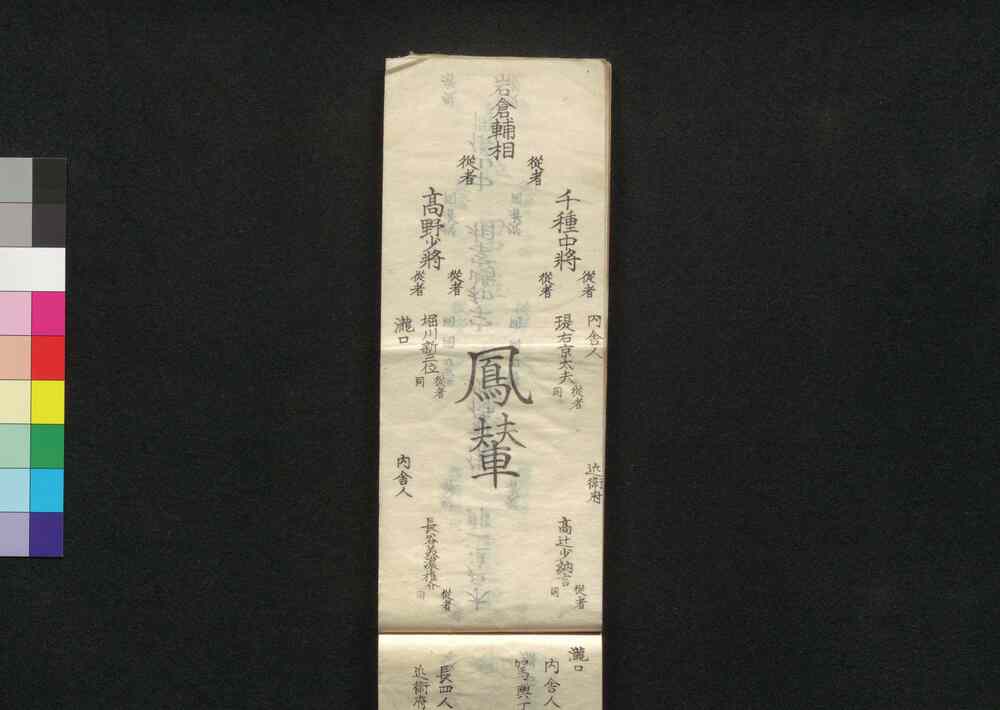 岩倉輔相
從者
從者
千種中將
從者
從者
髙野少將
從者
從者
內舍人
堤右京太夫
從者
同
堀川新三位
從者
同
瀧口
鳳輦
近衞府
髙辻少納言
從者
同
內舍人
長谷美濃権介
從者
同
瀧口
內舍人
駕輿丁
長四人
近衞府